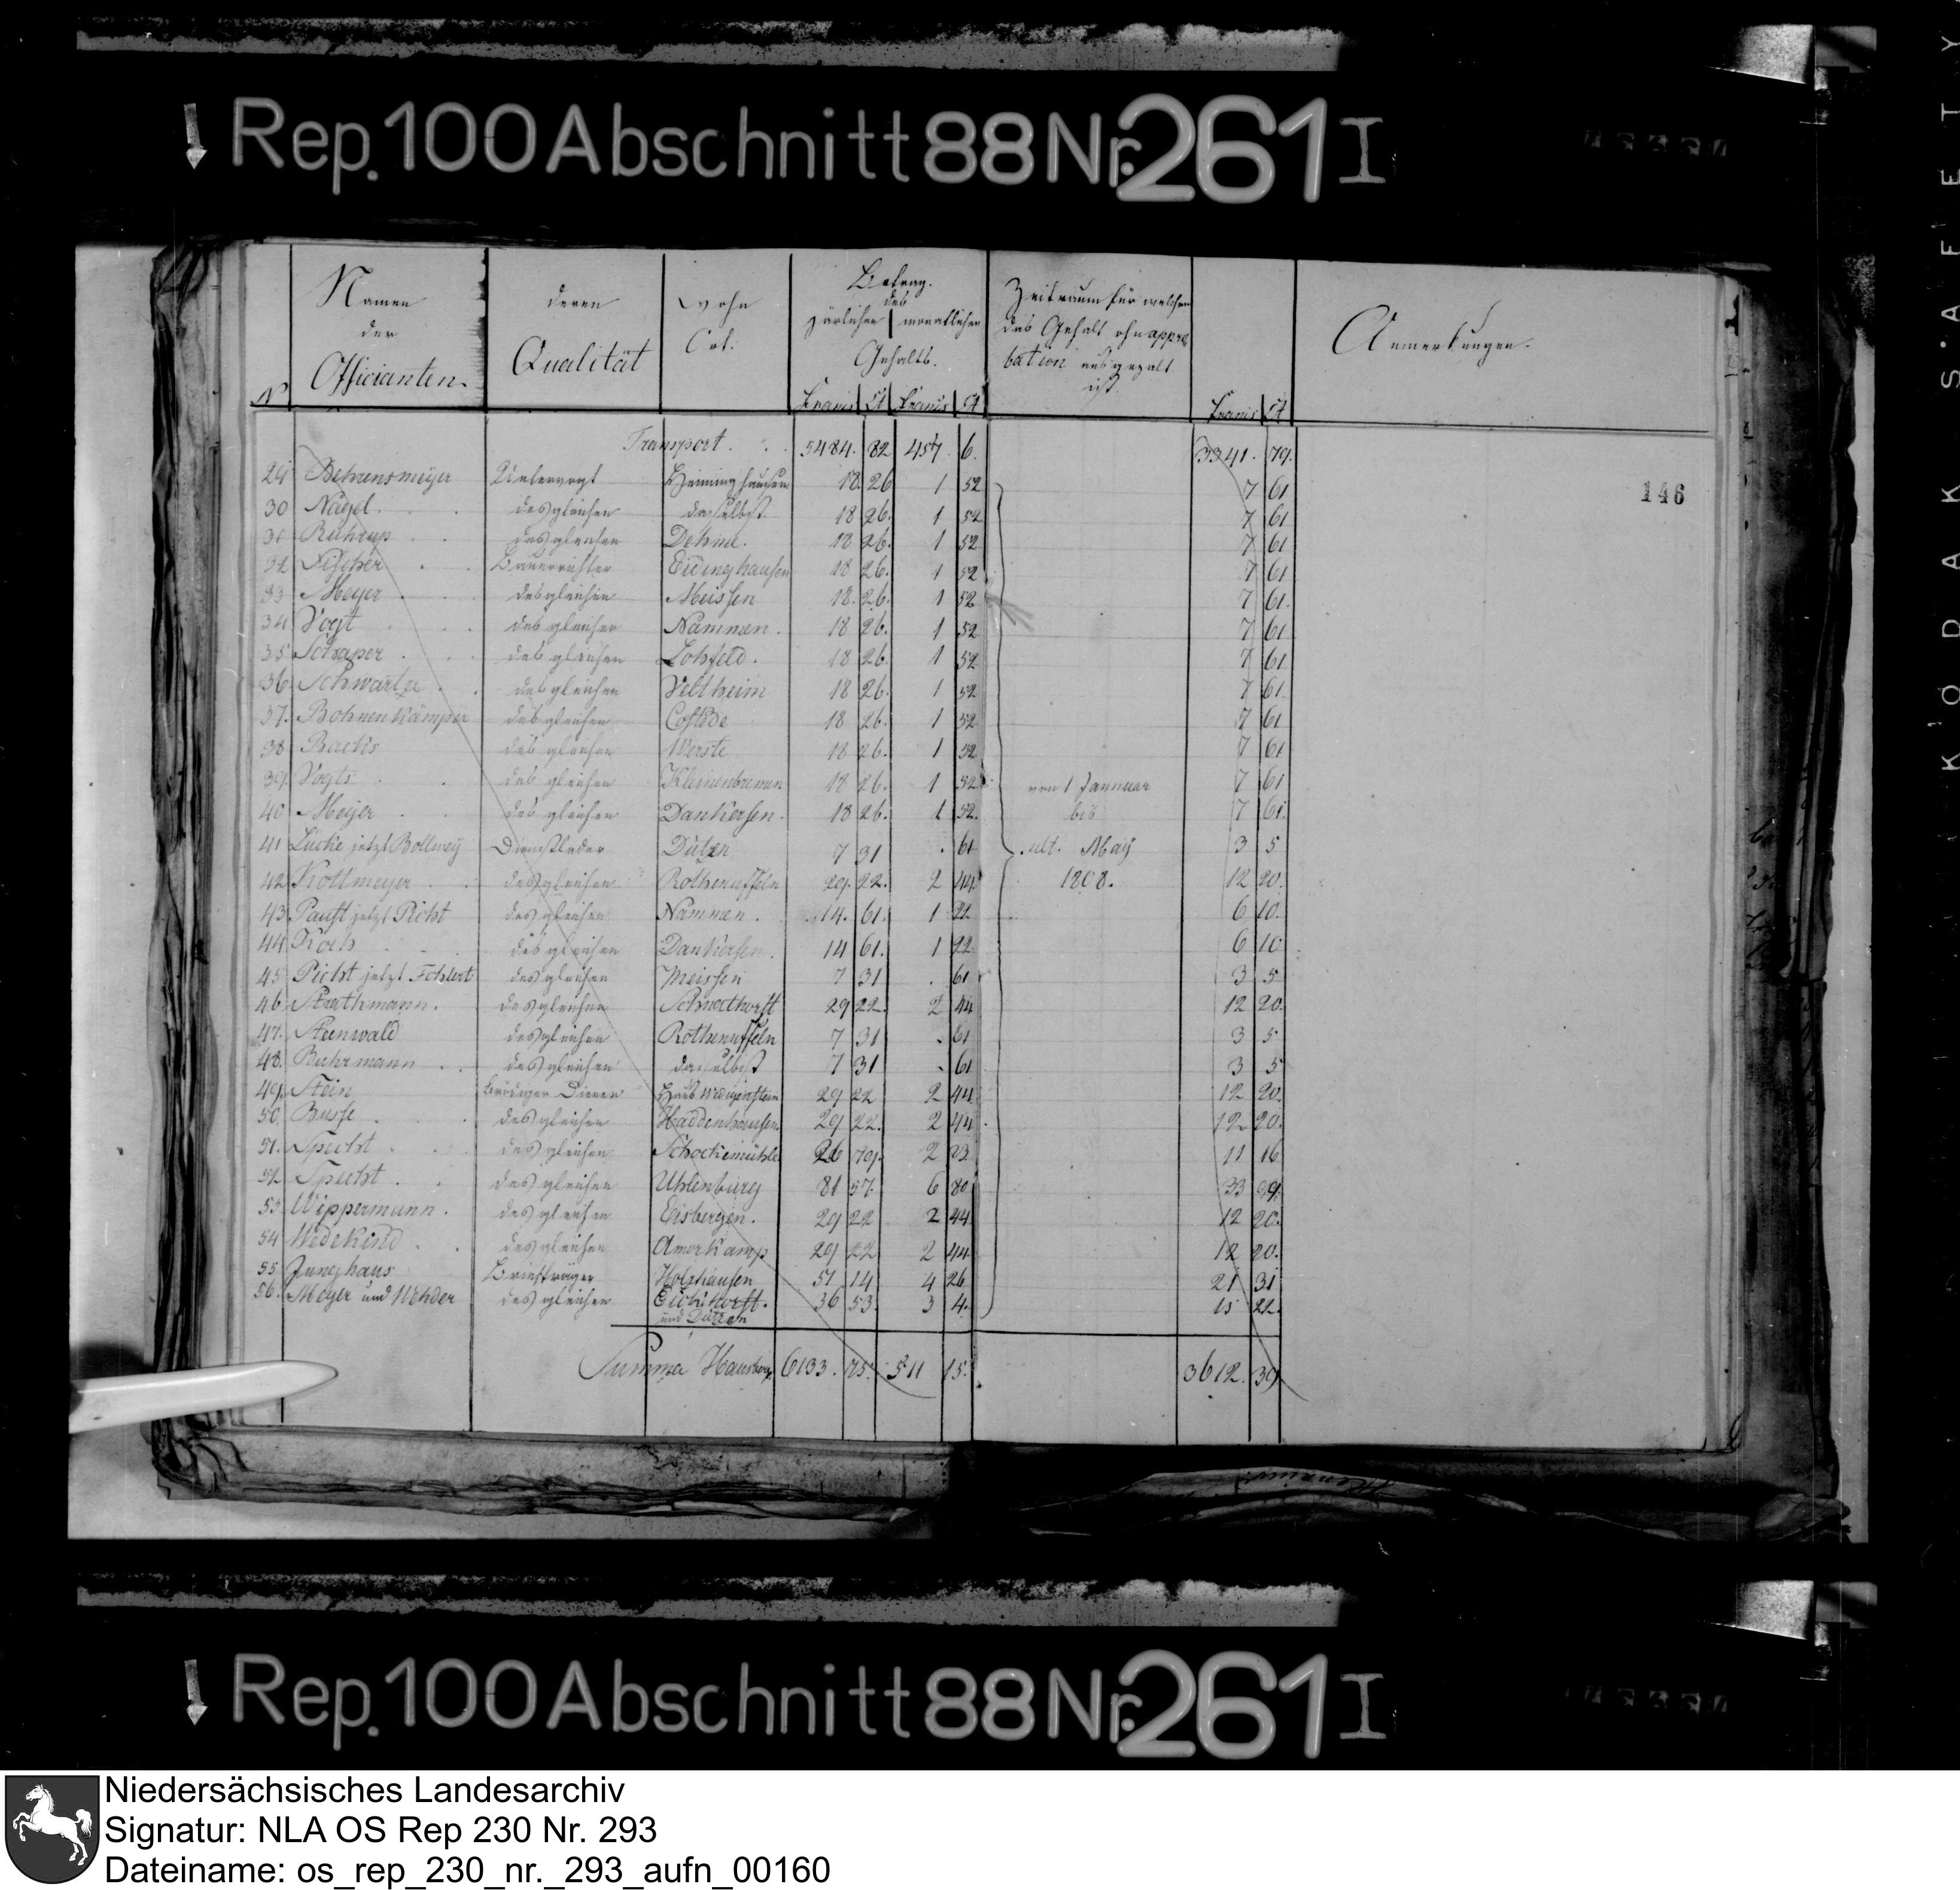 Rep. 100 Abschnitt 88 Nr. 261 I
KODAK S.AFETY
N Namen der Officianten. deren Qualität wohn Ort. Betrag des järlichen monatlichen Gehalts. Francs Ct Francs Ct Zeitraum für welchen das Gehalt ohn appro bation ausgezalt ist. Francs Ct Anmerkungen.
Transport . . . 5484. 82 457 6. 3341. 79.
29 Behrensmeÿer Untervogt 18. 26 1 52 7 61
146
30 Nagel . . desgleichen daselbst 18 26. 1 52 7 61
31 Rührup . . desgleichen Dehme. 18 26. 1 52 7 61
32 Fischer . . Bauerrichter Eidinghausen 18 26. 1 52 7 61
33 Meyer . . desgleichen Meissen 18. 26. 1 52 7 61.
34 Vogt . . desgleichen Nammen. 18 26. 1 52 7 61
35 Schaper . . desgleichen Lohfeld. 18 26 1 52 7 61
36 Schwartze . . desgleichen Veltheim 18 26. 1 52 7 61
37. Bohnenkämper desgleichen Costede 18 26. 1 52 7 61
38 Backs desgleichen Werste 18 26. 1 52 7 61
39 Vogts . . desgleichen Kleinenbremen 18 26. 1 52 von 1 Jannuar 7 61
40 Meyer . . desgleichen Dankersen. 18 26. 1 52. bis 7 61.
41 Lücke jetzt Bollweg 7 31 . 61 ult. Maÿ 3 5
42 Kottmeyer . . desgleichen Rothenuffeln 29. 22. 2 44. 1808. 12 20.
43 Paust jetzt Picht desgleichen Nammen. 14. 61. 1 22 6 10.
44 Koch . . desgleichen Dankersen. 14 61. 1 22 6 10
45 Picht jetzt desgleichen Meissen 7 31 . 61 3 5
46 Strathmann. desgleichen Schnathorst 29 22. 2 44 12 20.
47. desgleichen Rothenuffeln 7 31 . 61 3 5
48. Buhrmann . . desgleichen daselbst 7 31 . 61 3 5
49. Stein Haus Wedigenstein 29 22 2 44 12 20.
50. Busse . . desgleichen Haddenhausen 29 22. 2 44. 12 20.
51. Specht . . desgleichen Schockemühle 26 79. 2 23 11 16
52 Specht . . desgleichen Uhlenburg 81 57. 6 80 33 99.
53 Wippermann. desgleichen Eisbergen. 29 22 2 44 12 20.
54 Wedekind . . desgleichen Amorkamp 29 22 2 44. 12 20.
55 Junghans Briefträger Holzhausen 51 14 4 26 21 31
56. Meyer und Wehder desgleichen Eickhorst. und Dützen 36 53. 3 4. 15 22.
Summa Hausberge 6133. 75. 511 15. 3612. 39
Rep. 100 Abschnitt 88 Nr. 261 I
Niedersächsisches Landesarchiv
Signatur: NLA OS Rep 230 Nr. 293
Dateiname: os_rep_230_nr._293_aufn_00160